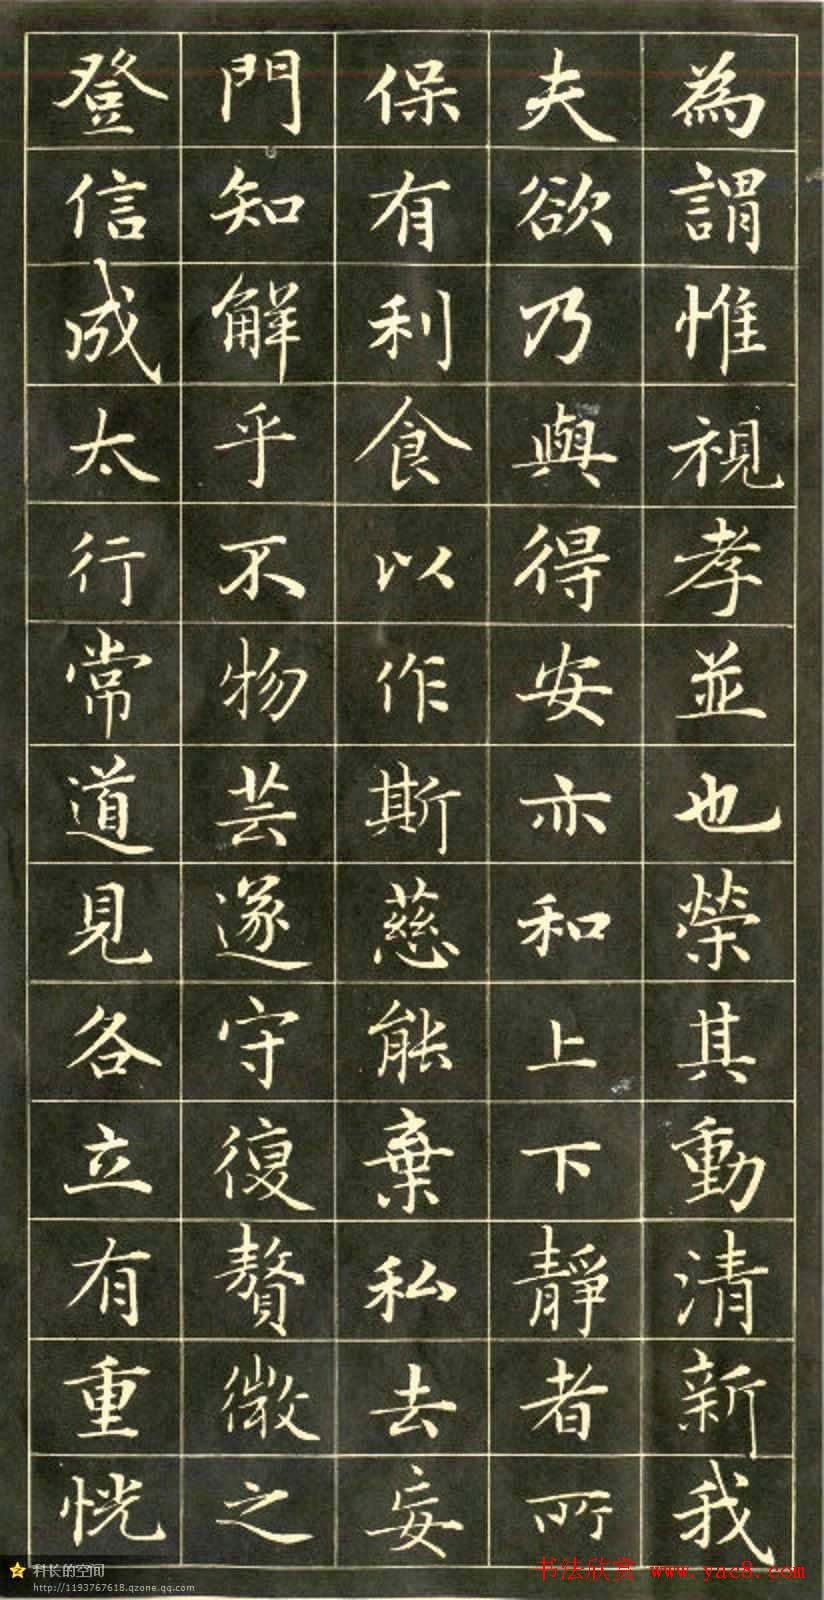 為謂惟視孝並也榮其動清新我
夫欲乃與得安亦和上下靜者所
保有利食以作斯慈能棄私去妄
門知解乎不物芸遂守復贅微之
登信成太行常道見各立有重恍
科长的空间
http://1193767618.qzone.qq.com
书法欣赏 www.yac8.com